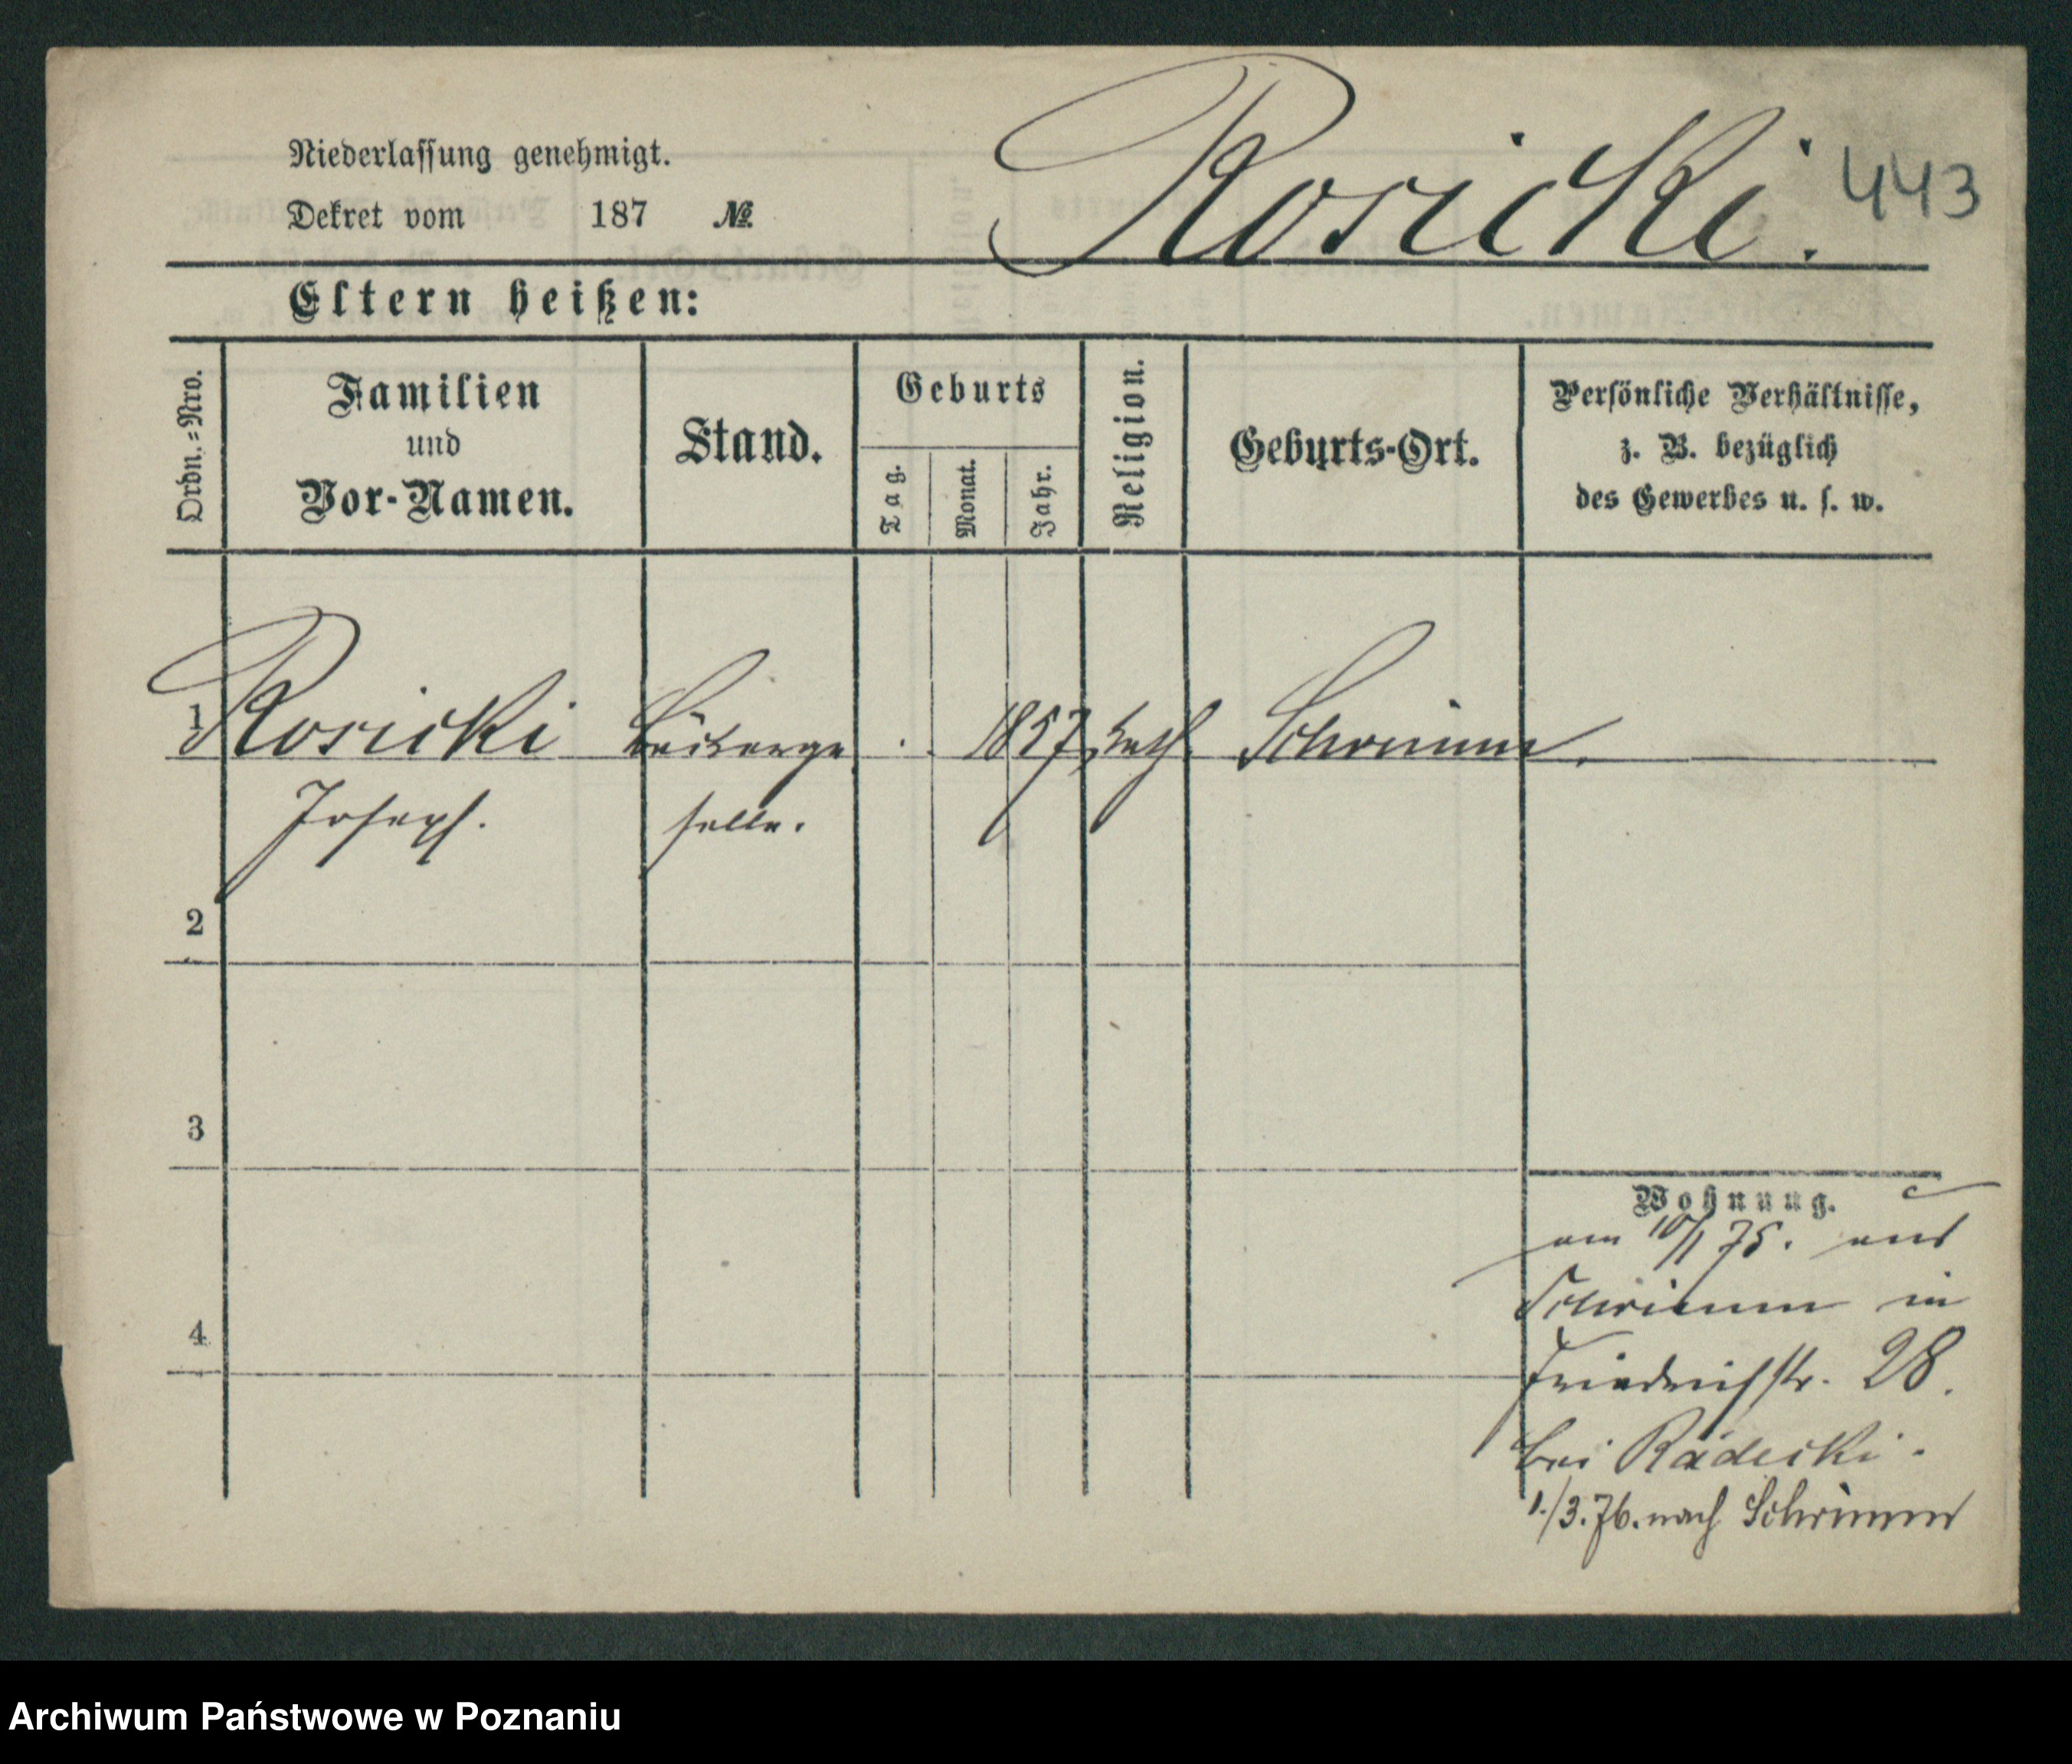 Niederlassung genehmigt.
Dekret vom 187 №
Rosicki. 443
Eltern heißen:
Ordn.=Nro.
Familien
und
Vor-Namen.
Stand.
Geburts
Tag.
Monat.
Jahr.
Religion.
Geburts-Ort.
Persönliche Verhältnisse,
z. B. bezüglich
des Gewerbes u. s. w.
1 Rosicki Bäckerge 1857 kath. Schrimm.
Joseph. selle.
2
3
4
Wohnung.
am 10/1 75. aus
Schrimm in
Friedrichstr. 28.
bei Radecki.
1./3.76. nach Schrimm
Archiwum Państwowe w Poznaniu